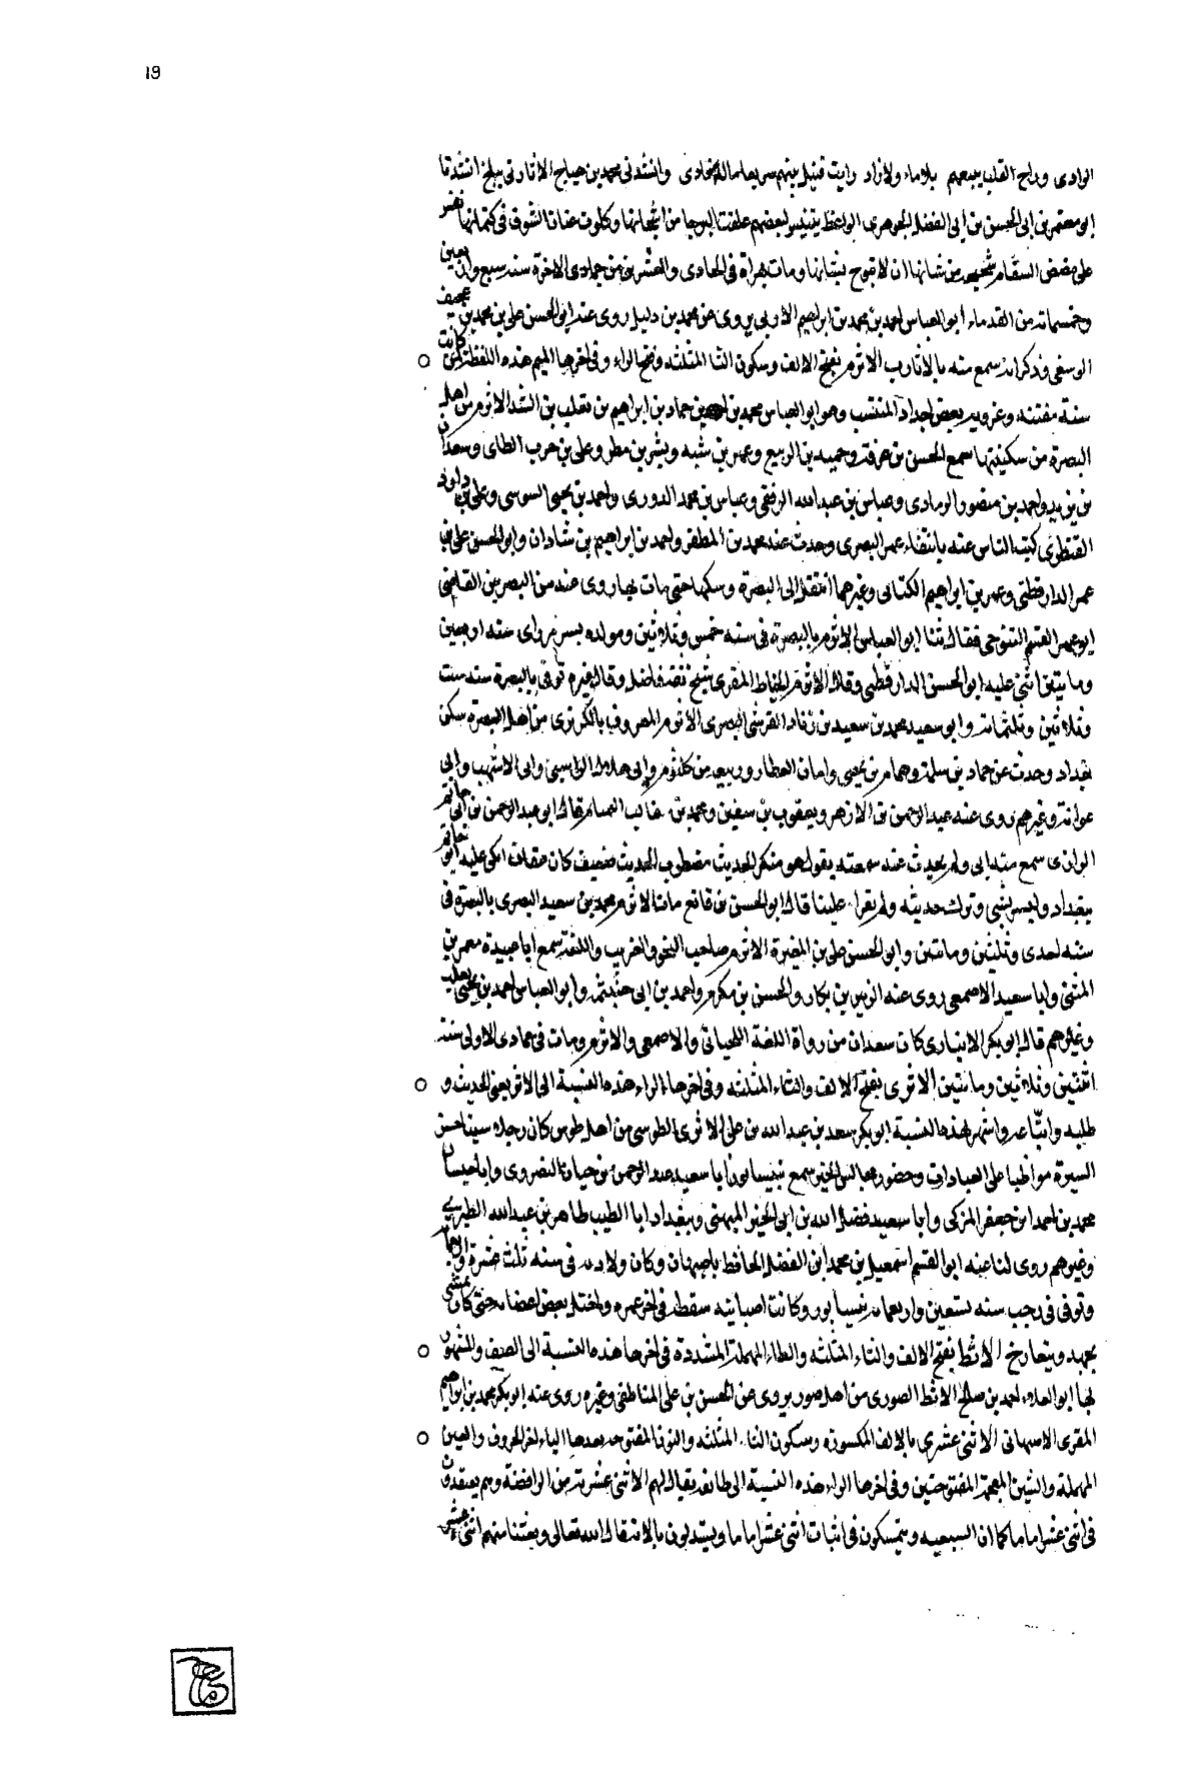 19
الوادى وراح القلب يتبعهم بلا ماء ولا زاد وانشدنى محمد بن صباح الاثاربى ببلخ انشدنا
ابو معتمر بن ابى الحسن بن ابى الفضل الجوهرى الواعظ لبعضهم
على مضض السقام ومات بهراة فى الحادى والعشرين من جمادى الاخرة سنة سبع واربعين
وخمسمائة من القدماء ابو العباس احمد بن محمد بن ابراهيم يروى عن محمد بن دليل روى عنه ابو الحسن على بن محمد بن
وذكر انه سمع منه بالاثارب الاثرم بفتح الالف وسكون الثا المثلثه وفتح الراء وفى اخرها الميم هذه اللفظة لمن كانت
سنه مفتتة وعرف به بعض اجداد المنتسب وهو ابو العباس محمد بن احمد بن حماد بن ابراهيم بن ثعلب بن الشد الاثرم من اهل
البصرة من سكينتها سمع الحسن بن عرفة وحميد بن الربيع وعمر بن شبه وبشر بن مطر وعلى بن حرب الطاى وسعدان
بن يزيد واحمد بن منصور الرمادى وعباس بن عبد الله الرفقى وعباس بن محمد الدورى واحمد بن يحيى السوسى وعلى بن داود
القنطرى كتب الناس عنه بانتقاء عمر البصرى وحدث عنه محمد بن المظفر واحمد بن ابراهيم بن شادان وابو الحسن على بن
عمر الدارقطنى وعمر بن ابراهيم الكتانى وغيرهما انتقل الى البصرة وسكنها حتى مات بها روى عنه من البصريين القاضى
ابو عمر القسم التنوحى فقال ثنا ابو العباس الاثرم بالبصرة فى سنه خمس وثلاثين ومولده بسر من راى سنه اربعين
وما يتين اثنى عليه ابو الحسن الدارقطنى وقال الاثرم الخياط المقرى شيخ ثقة فاضل وقال غيره توفى بالبصرة سنه ست
وثلاثين وثلثمائه وابو سعيد محمد بن سعيد بن زناد القرشى البصرى الاثرم المعروف بالكريزى من اهل البصرة سكن
بغداد وحدث عن حماد بن سلمة وهمام بن يحيى وابان العطار وربيعه بن كلثوم وابى هلال الراسبى وابى الاشهب وابى
عوانة وغيرهم روى عنه عبد الرحمن بن الازهر ويعقوب بن سفين ومحمد بن غالب التمتام قال ابو عبد الرحمن بن ابى حاتم
الرازى سمع منه ابى ولم يحدث عنه سمعته يقول هو منكر الحديث مضطرب الحديث ضعيف كان
ببغداد وليس بشى وترك حديثه ولم يقرا علينا قال ابو الحسن بن قانع مات الاثرم محمد بن سعيد البصرى بالبصرة فى
سنه احدى وثلثين ومائتين وابو الحسن على بن المغيرة الاثرم صاحب النحو والغريب واللغة سمع ابا عبيدة معمر بن
المثنى وابا سعيد الاصمعى روى عنه الزبير بن بكار والحسن بن مكرم واحمد بن ابى خيثمه وابو العباس احمد بن يحيى ثعلب
وغيرهم قال ابو بكر الانبارى كان سعدان من رواة اللغة اللحيانى والاصمعى والاثرم ومات فى جمادى الاولى سنة
اثنتين وثلاثين ومائتين الاثرى بفتح الالف والثاء المثلثه وفى اخرها الراء هذه النسبة الى الاثر يعنى الحديث و
طلبه واتباعه واشتهر بهذه النسبة ابو بكر سعد بن عبد الله بن على الاثرى الطوسى من اهل طوس كان رجلا سنيا حسن
السيرة مواظبا على العبادات وحضور مجالس الخير سمع بنيسابور ابا سعيد عبد الرحمن بن حمدان النصروى وابا حسان
محمد بن احمد ابن جعفر المزكى وابا سعيد فضل الله بن ابى الخير الميهنى وببغداد ابا الطيب طاهر بن عبد الله الطبرى
وغيرهم روى لنا عنه ابو القسم اسمعيل بن محمد ابن الفضل الحافظ باصبهان وكان ولادته فى سنه ثلث عشرة واربعمائة
وتوفى فى رجب سنه تسعين واربعمائه بنيسابور وكانت اصابته سقطة فى اخر عمره واختل بعض اعضائه حتى كان يمشى
بجهد الاثط بفتح الالف والثاء المثلثه والطاء المهملة المشددة فى اخرها هذه النسبة الى الصفة والمشهور
بها ابو العلاء احمد بن صالح الاثط الصورى من اهل صور يروى عن الحسن بن على المناطقى وغيره روى عنه ابو بكر محمد بن ابراهيم
المقرى الاصبهانى الاثنى عشرى بالالف المكسورة وسكون الثاء المثلثه والنون المفتوحه بعدها الياء اخر الحروف والعين
المهملة والشين المعجمة المفتوحتين وفى اخرها الراء هذه النسبة الى طائفة يقال لهم الاثنى عشرية من الرافضة وهم يعتقدون
فى اثنى عشر اماما كما ان السبعيه ويتمسكون فى اثبات اثنى عشر اماما ويستدلون بالا قال الله تعالى وبعثنا منهم اثنى عشر